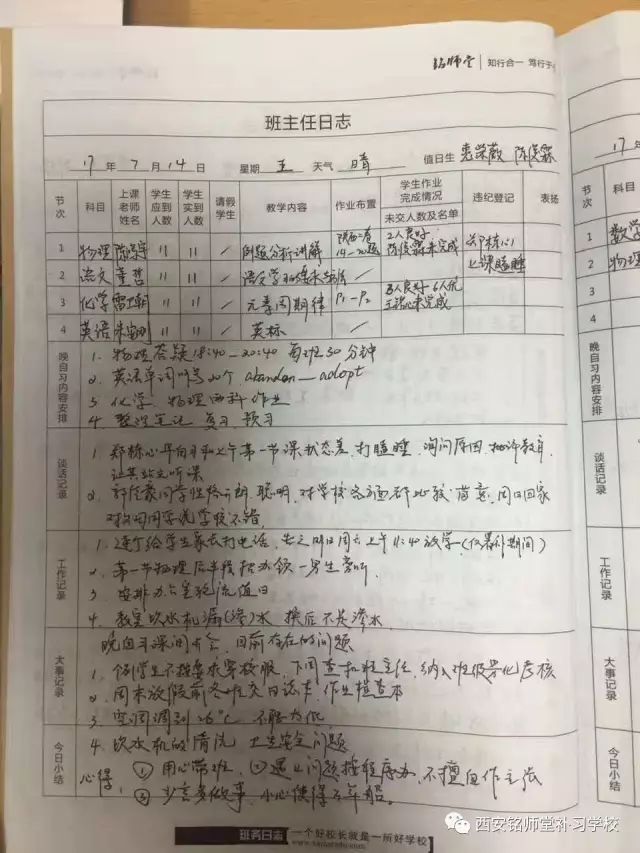 铭师堂 | 知行合一 笃行于
班主任日志
17 年 7 月 14 日 星期 五 天气 晴 值日生 惠荣薇 陈俊霖
17 年
节次 科目 上课老师姓名 学生应到人数 学生实到人数 请假学生 教学内容 作业布置 学生作业完成情况 未交人数及名单 违纪登记 表扬
1 物理 11 11 / 例题分析讲解 2人良好 陈俊霖未完成
2 语文 董哲 11 11 / / 上课瞌睡
3 化学 雷卫朝 11 11 / 元素周期律 P1-P2 未完成
4 英语 11 11 / 英标 /
节次 科目
1 数学
2 物理
3
4
晚自习内容安排
1. 物理答疑 18:40—20:40 每班30分钟
2. 英语单词听写20个 abandon — adopt
3. 化学 物理两科作业
4. 整理笔记 复习 预习
谈话记录
1. 郑栋心早自习和上午第一节课状态差,打瞌睡,询问原因,批评教育,
让其站立听课
2. 同学性格开朗 聪明,对学校各方面都比较满意,周日回家
学校不错.
工作记录
1. 逐个给学生家长打电话,告之明日周六上午11:40放学(仅暑假期间)
2. 第一节物理后半段校办领一男生旁听.
3. 安排办公室轮流值日
4. 教室饮水机漏(渗)水 换后不是渗水.
大事记录
晚自习课间开会,目前存在的问题
1. 个别学生不按要求穿校服,下周查扣班主任,纳入班级量化考核
2. 周末放假前各班交日志本,作业检查本
3. 空调调到26℃ 不能太低
今日小结
4. 饮水机的清洗 卫生安全问题
心得: ① 用心带班, ② 遇上问题按程序办,不擅自作主张
③ 少言多做事,小心使得万年船。
班务日志 一个好校长就是一所好学校
西安铭师堂补习学校